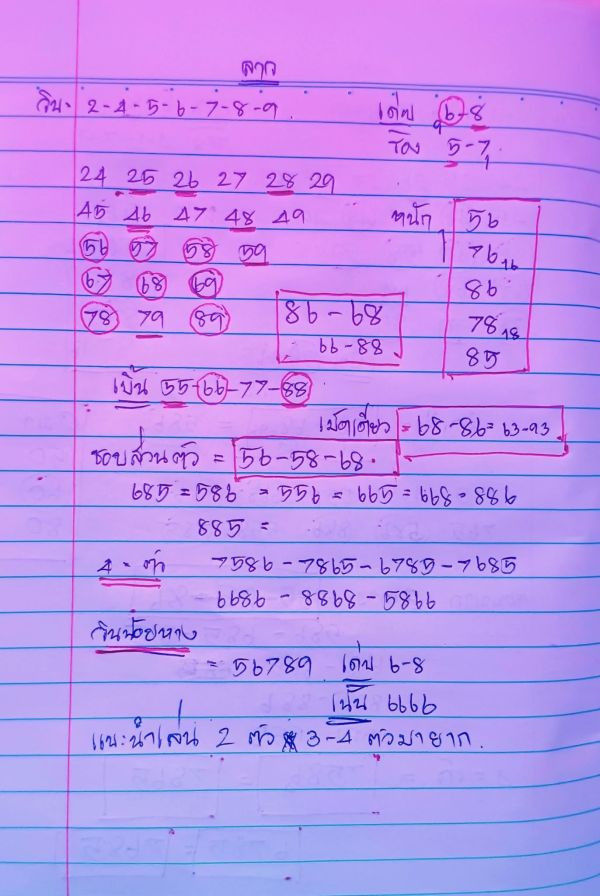 ลาว
วิน - 2-4-5-6-7-8-9.
เด่น 6-8
รอง 5-7
24 25 26 27 28 29
45 46 47 48 49
หนัก 56
56 57 58 59
76 16
67 68 69
86
78 79 89
86-68
78 18
66-88
85
เบิ้ล 55-66-77-88
เม็ดเดียว = 68-86= 63-93
ชอบส่วนตัว = 56-58-68.
685=586 = 556 = 665=668-886
885 =
4 - ตัว 7586-7865-6785-7685
6686 - 8868-5866
วินน้อยหาง
= 56789 เด่น 6-8
เน้น 6666
แนะนำเล่น 2 ตัว 3-4 ตัวมายาก.